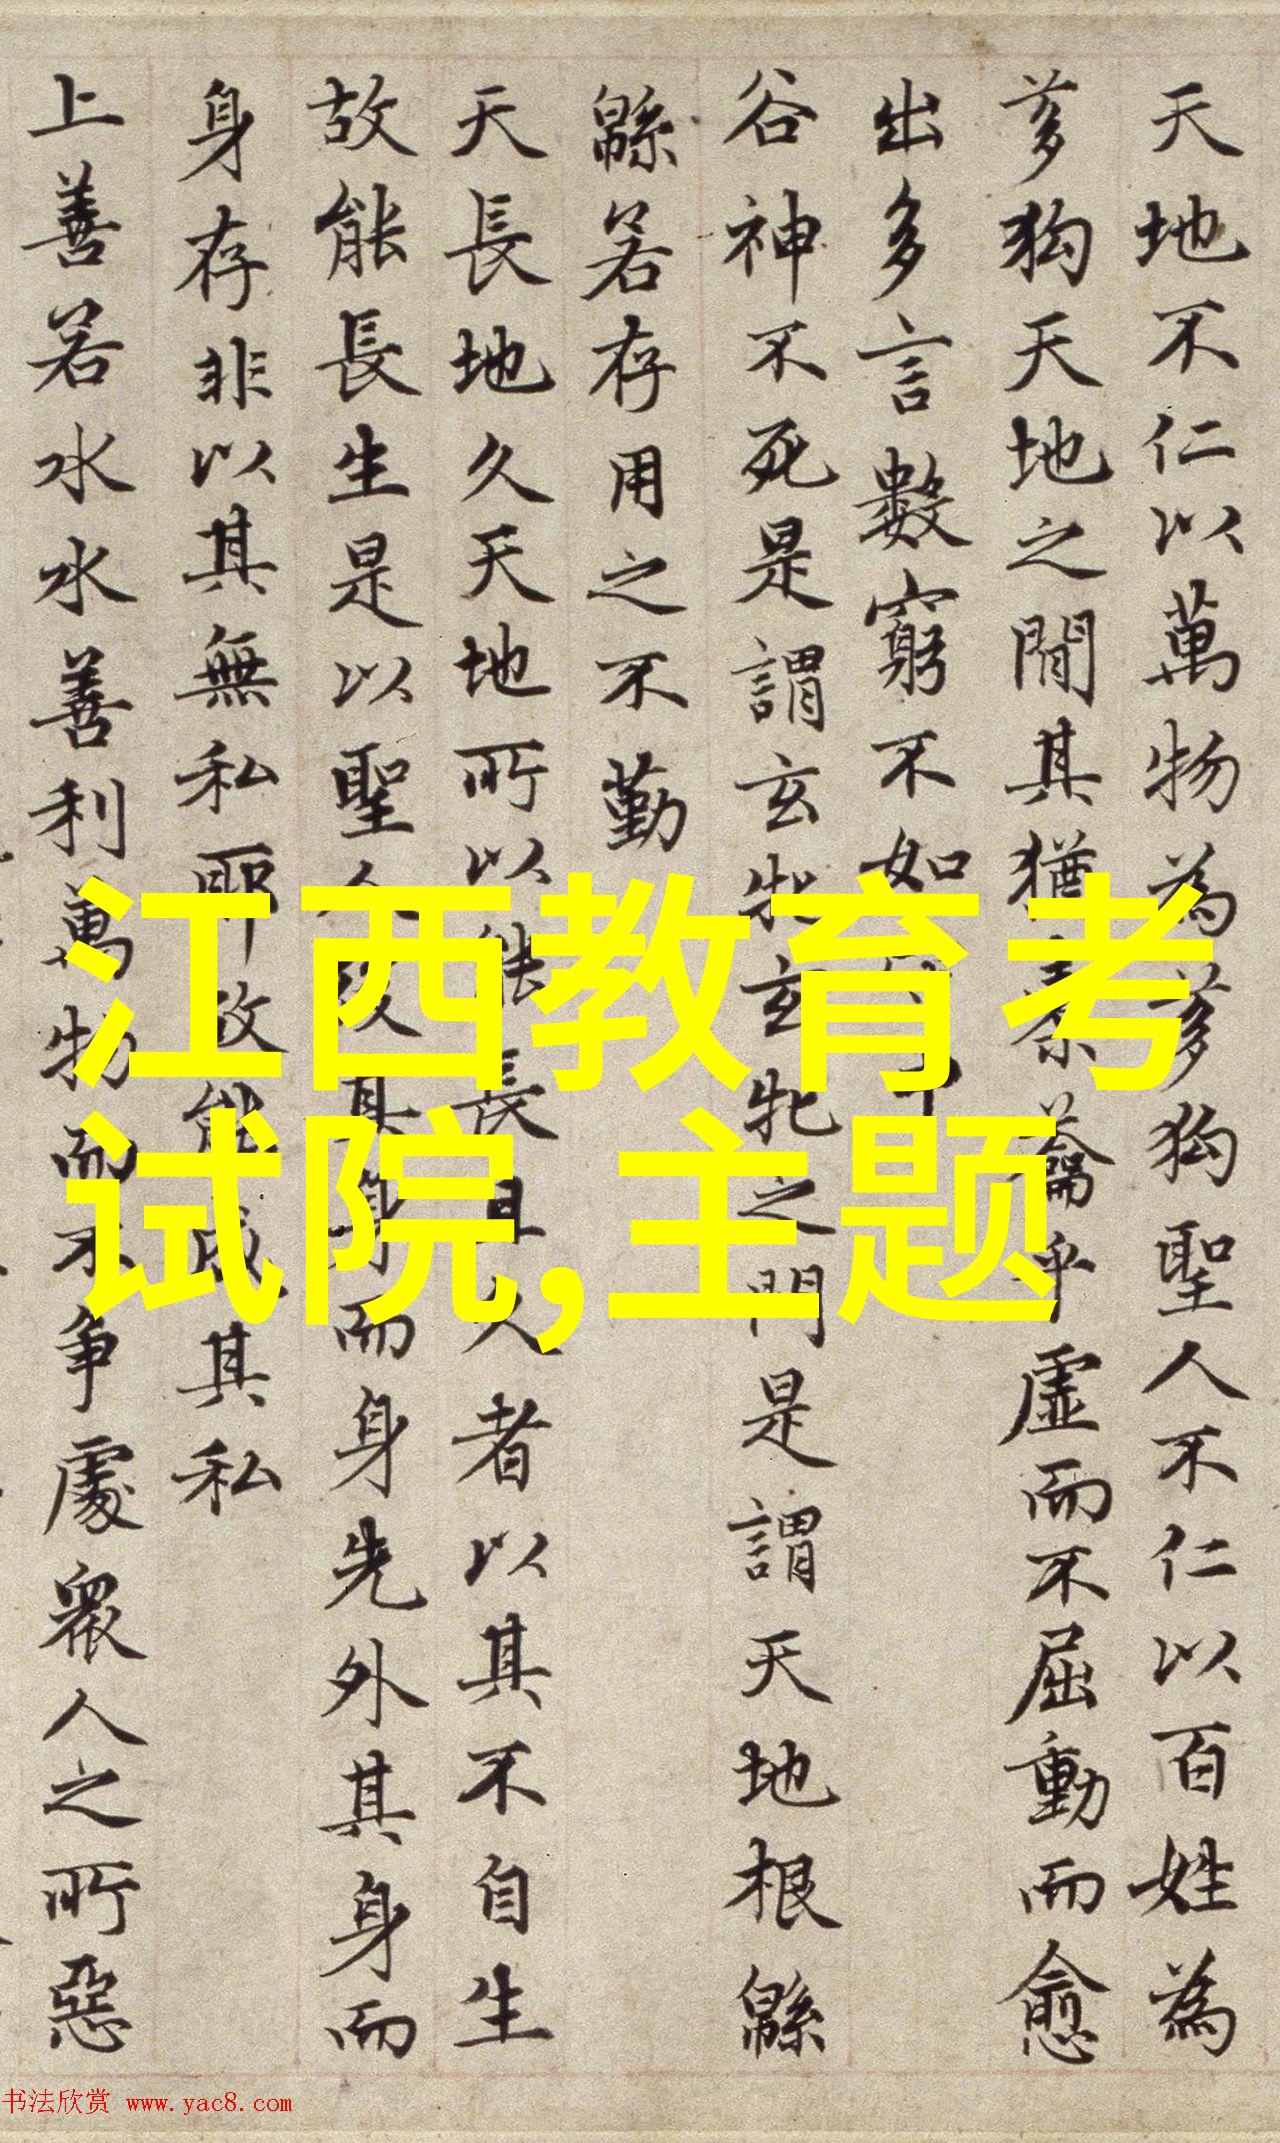 天地不仁以萬物為芻狗聖人不仁以百姓為
芻狗天地之間其猶橐籥乎虛而不屈動而愈
出多言數窮不如守中
谷神不死是謂玄牝玄牝之門是謂天地根緜
緜若存用之不勤
天長地久天地所以能長且久者以其不自生
故能長生是以聖人後其身而身先外其身而
身存非以其無私耶故能成其私
上善若水水善利萬物而不争處衆人之所惡
江西教育考
试院,主题
书法欣赏 www.yac8.com